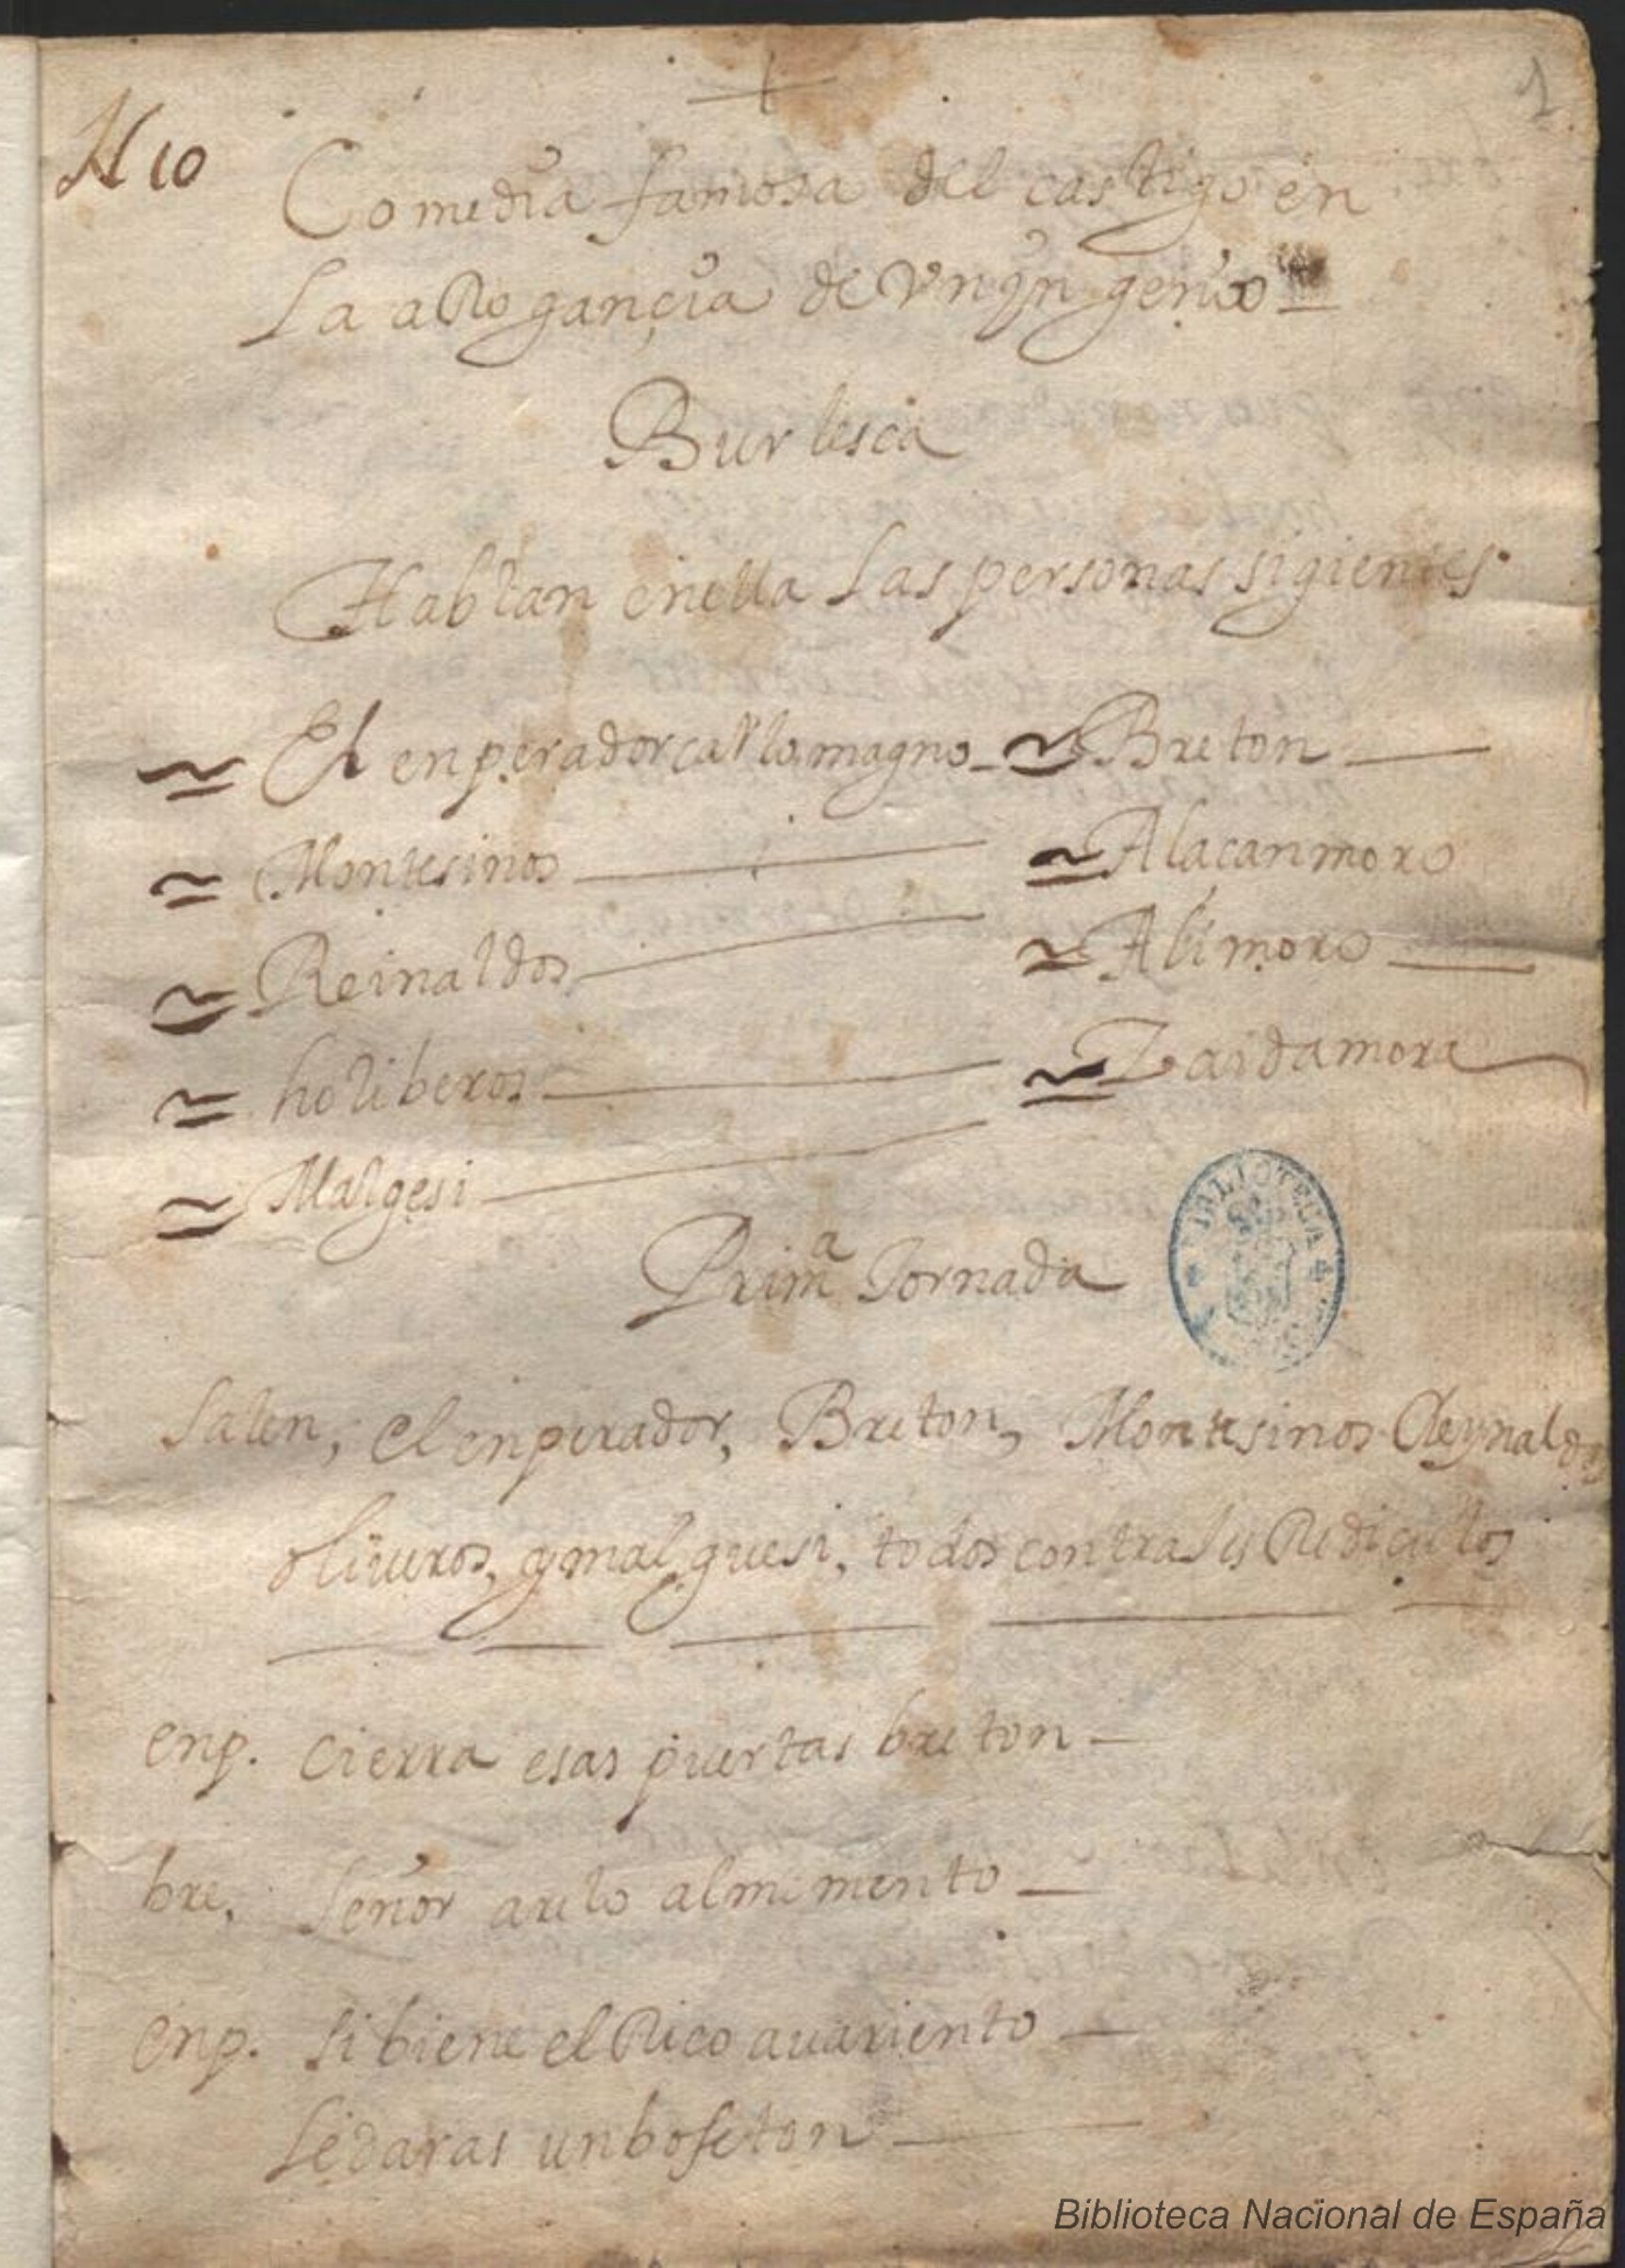 1
H 10
Comedia famosa del castigo en
La aRogançia de Vn yngenio
Burlesca
Hablan en ella Las personas sigientes.
El enperador carlo magno Breton
Montesinos Alacan moro
Reinaldos Ali moro
holiberos Zaida mora
Malgesi
Primª Jornada
Salen, el enperador, Breton, Montesinos Reynaldos
oliueros, y malguesi, todos con trajes Rediculos
enp. Cierra esas puertas breton
bre. Señor arelo al mimento
enp. si biene el Rico auariento
Le daras un bofeton
BIBLIOTECA
Biblioteca Nacional de España